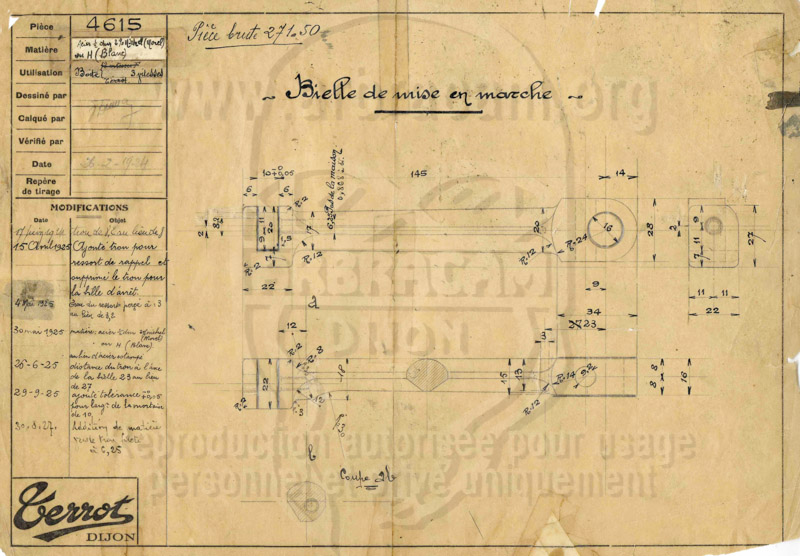 Pièce 4615
Matière
ou H (Blanc)
Utilisation Boîte 3 vitesses
Dessiné par
Calqué par
Vérifié par
Date 26-2-1924
Repère
de tirage
MODIFICATIONS
Date Objet
15 Avril 1925 Ajouté trou pour
ressort de rappel et
supprimé le trou pour
la bille d'arrêt
4 Mai 1925 Trou du ressort percé à 3
au lieu de 3,2
30 mai 1925 matière: acier
ou H (Blanc)
au lieu d'acier estampé
26-6-25 distance du trou à l'axe
de la bielle 23 au lieu
de 27
29-9-25 ajouté tolérance
pour largr de la mortaise
de 10
30.8.27. Addition de matière
à 6,25
Terrot
DIJON
Pièce brute 271.50
~ Bielle de mise en marche ~
www. .org
10 +0,05
6 6
145
14
R.2
2
32
9
11
20
17
R.12
R.2
22
20
R.12
R.24
16
28
2
7 11 9
27
11 11
22
34
23
3
a
12
22
R.2
R.8
18
R.3
R.30
15
13
R.12
R.14
8 8
16
b
Coupe ab
ABRACAM
DIJON
Reproduction autorisée pour usage
personnel et privé uniquement